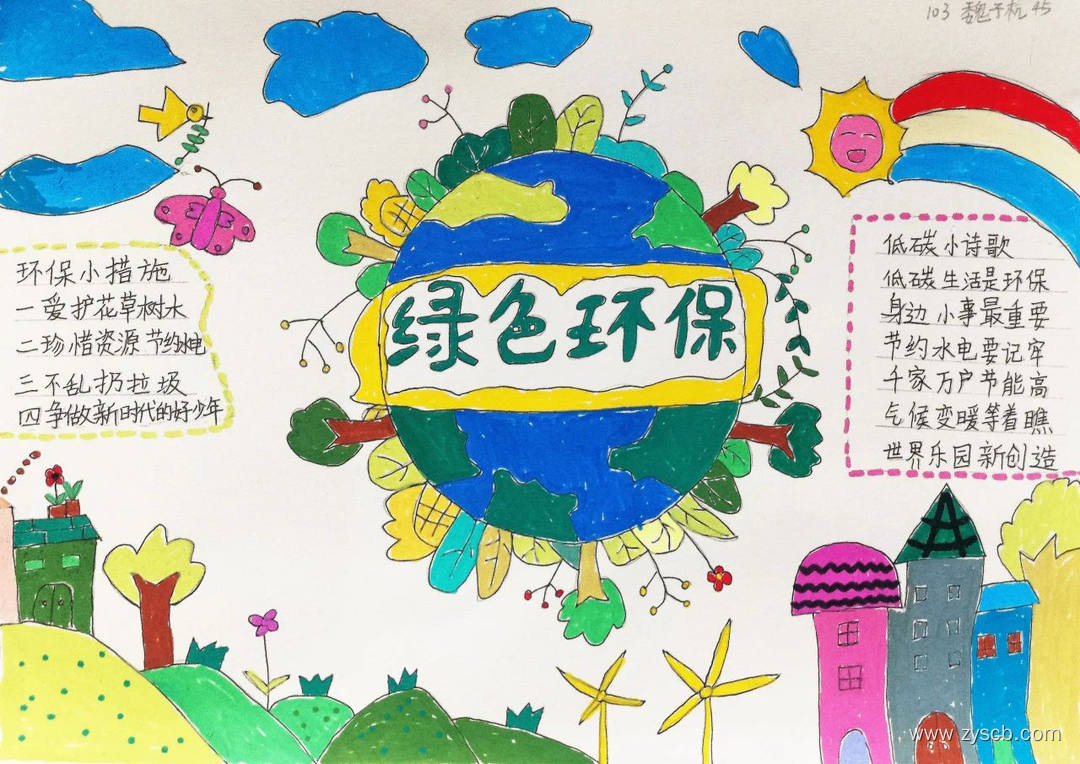 103 魏子杭 45
绿色环保
环保小措施
一爱护花草树木
二珍惜资源 节约水电
三不乱扔垃圾
四争做新时代的好少年
低碳小诗歌
低碳生活是环保
身边小事最重要
节约水电要记牢
千家万户节能高
气候变暖等着瞧
世界乐园新创造
www.zyscb.com